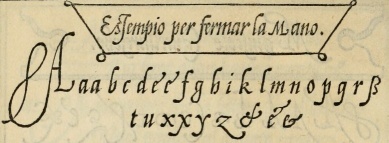 Essempio per fermar la Mano.
A a a b c d e e f g h i k l m n o p q r ß
t u x x y z & & &